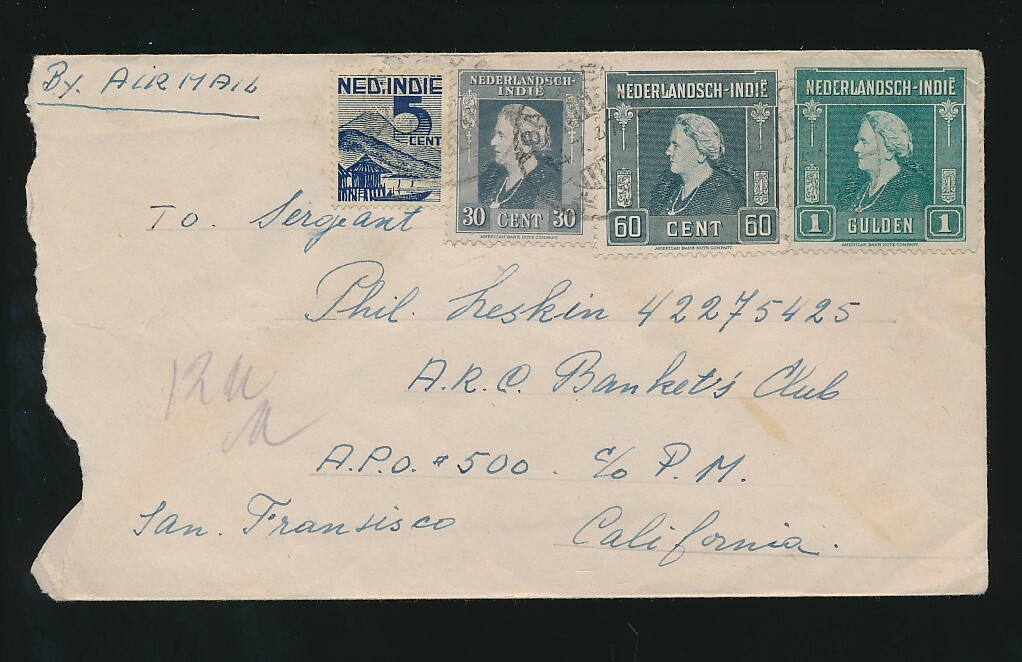 By. AIRMAIL
NED·INDIË
5
CENT
NEDERLANDSCH-
INDIË
30 CENT 30
AMERICAN BANK NOTE COMPANY.
NEDERLANDSCH-INDIË
60 CENT 60
AMERICAN BANK NOTE COMPANY.
NEDERLANDSCH-INDIË
1 GULDEN 1
AMERICAN BANK NOTE COMPANY.
To Sergeant
Phil. Leskin 42275425
A.R.C. Banket's Club
A.P.O. # 500. c/o P.M.
San. Fransisco California.